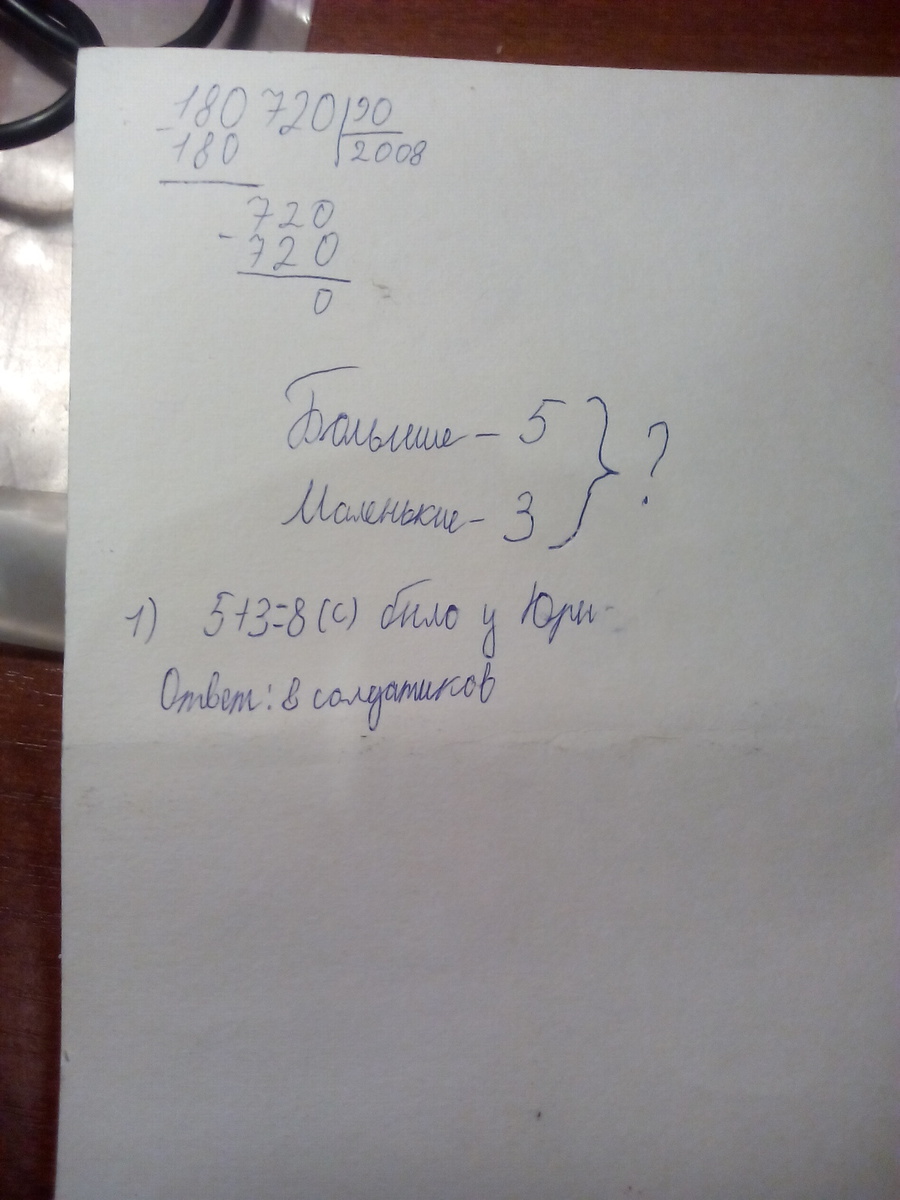 180720|90
-180 2008
720
-720
0
Большие - 5
Маленькие - 3 } ?
1) 5+3=8 (с) было у Юры
Ответ: 8 солдатиков